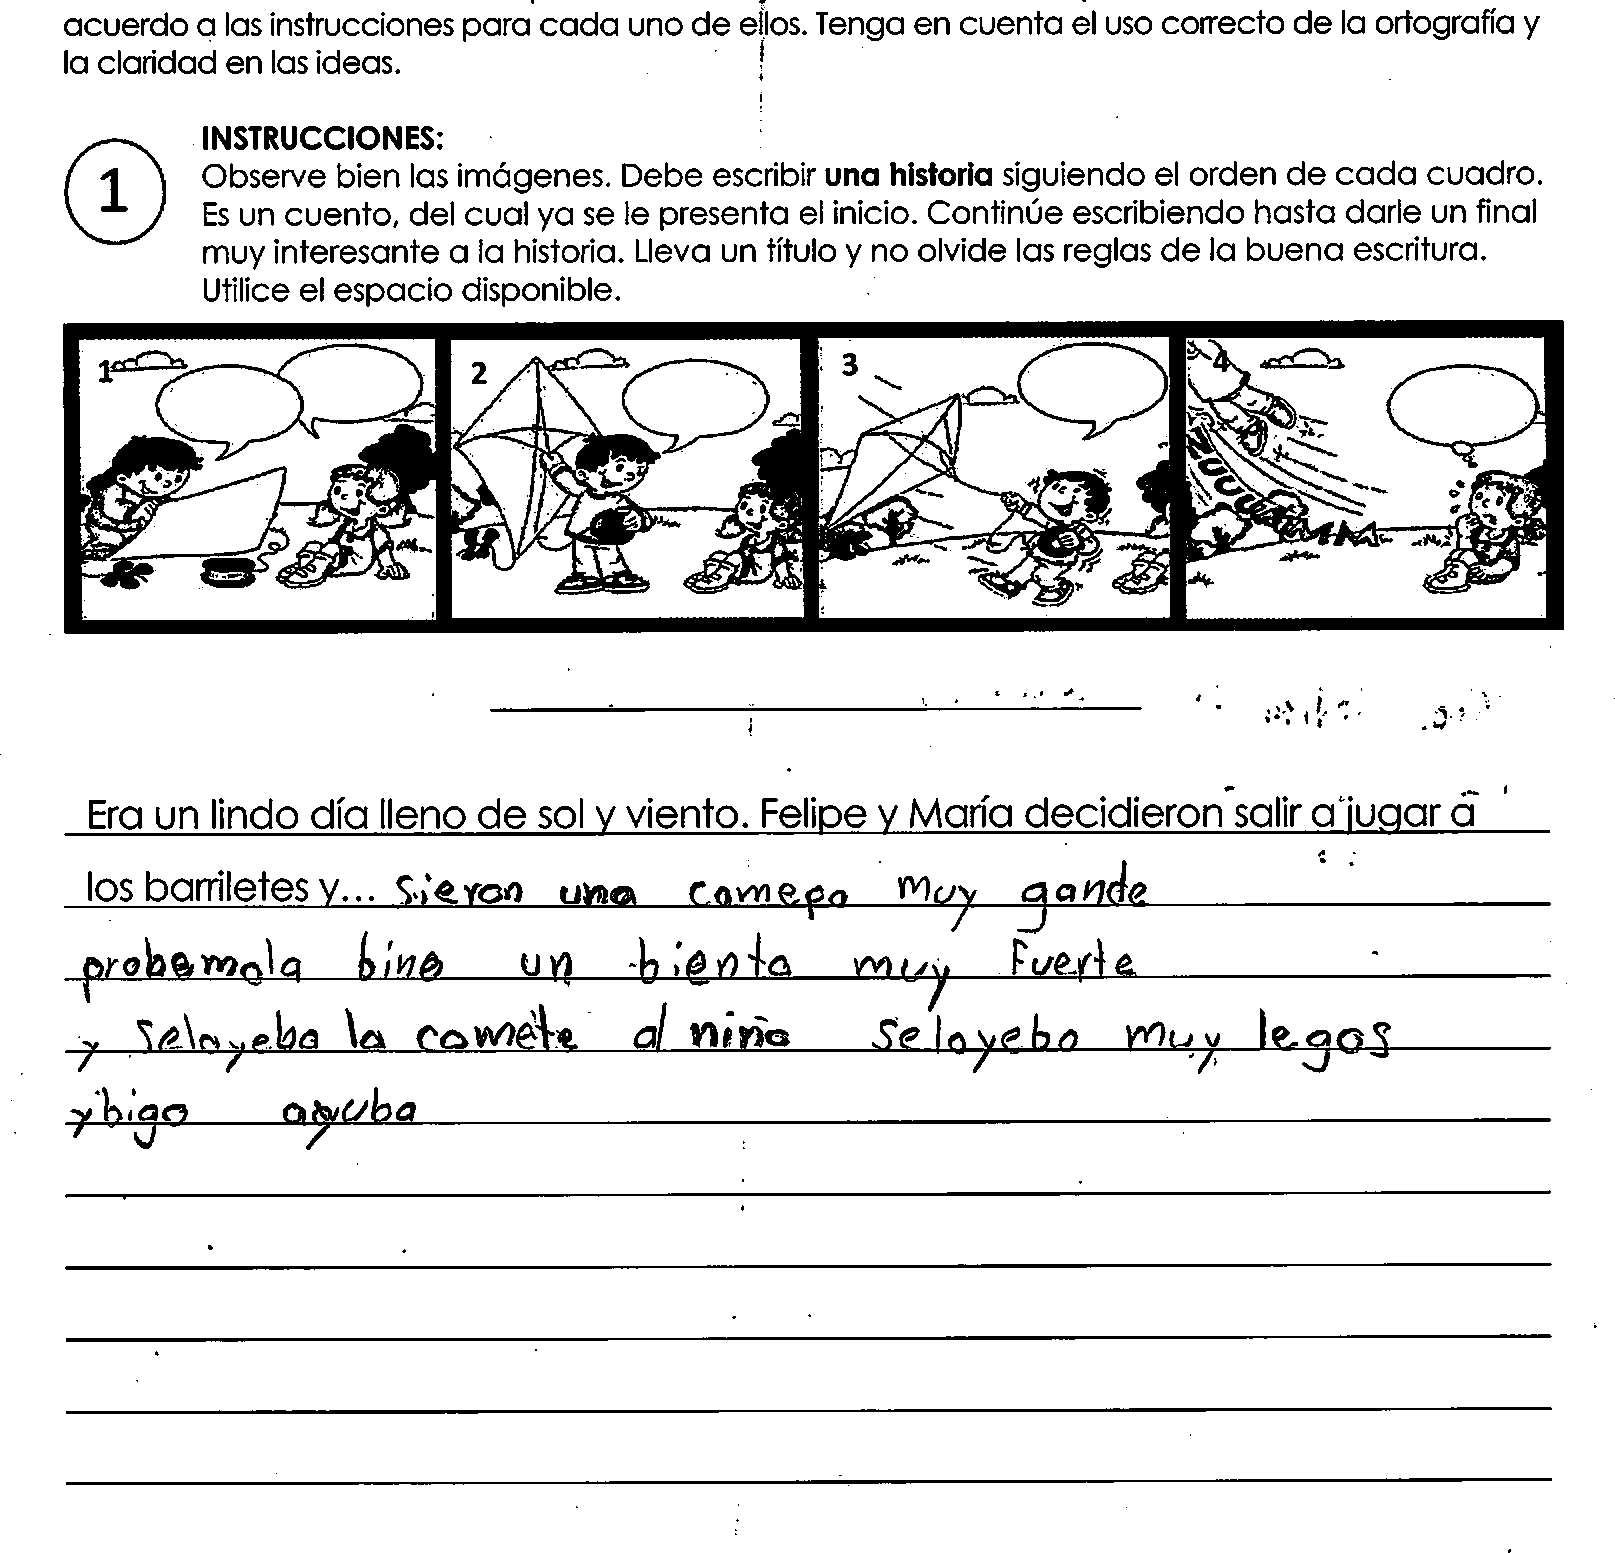 acuerdo a las instrucciones para cada uno de ellos. Tenga en cuenta el uso correcto de la ortografía y
la claridad en las ideas.
1
INSTRUCCIONES:
Observe bien las imágenes. Debe escribir una historia siguiendo el orden de cada cuadro.
Es un cuento, del cual ya se le presenta el inicio. Continúe escribiendo hasta darle un final
muy interesante a la historia. Lleva un título y no olvide las reglas de la buena escritura.
Utilice el espacio disponible.
1 2 3 4
Era un lindo día lleno de sol y viento. Felipe y María decidieron salir a jugar a
los barriletes y... sieron una comepa muy gande
probemola bino un biento muy Fuerte
y seloyebo la comete al niño seloyebo muy legos
y bigo ayuba